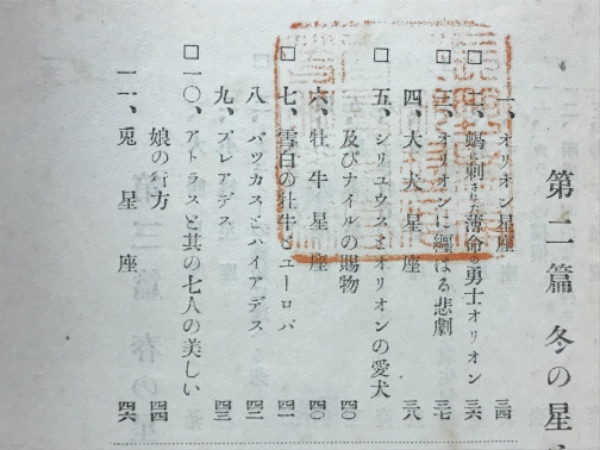 第二篇 冬の星
一、オリオン星座 三四
□二、蝎に刺された薄命の勇士オリオン 三六
□三、オリオンに纏はる悲劇 三七
四、大犬星座 三八
□五、シリユウスとオリオンの愛犬
及びナイルの賜物 四〇
六、牡牛星座 四〇
□七、雪白の牡牛とユーロパ 四一
八、バツカスとハイアデス 四二
九、プレアデス 四三
□一〇、アトラスと其の七人の美しい
娘の行方 四四
一一、兎星座 四六